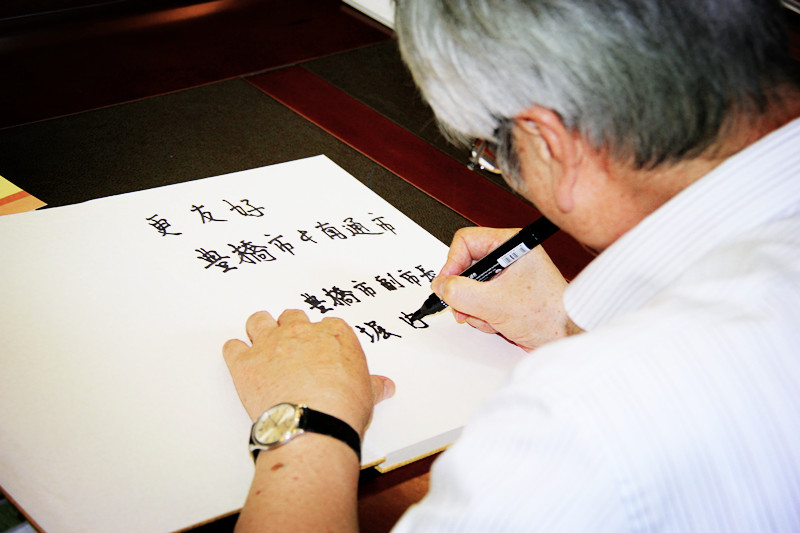 更友好
豊橋市と南通市
豊橋市副市長
堀内